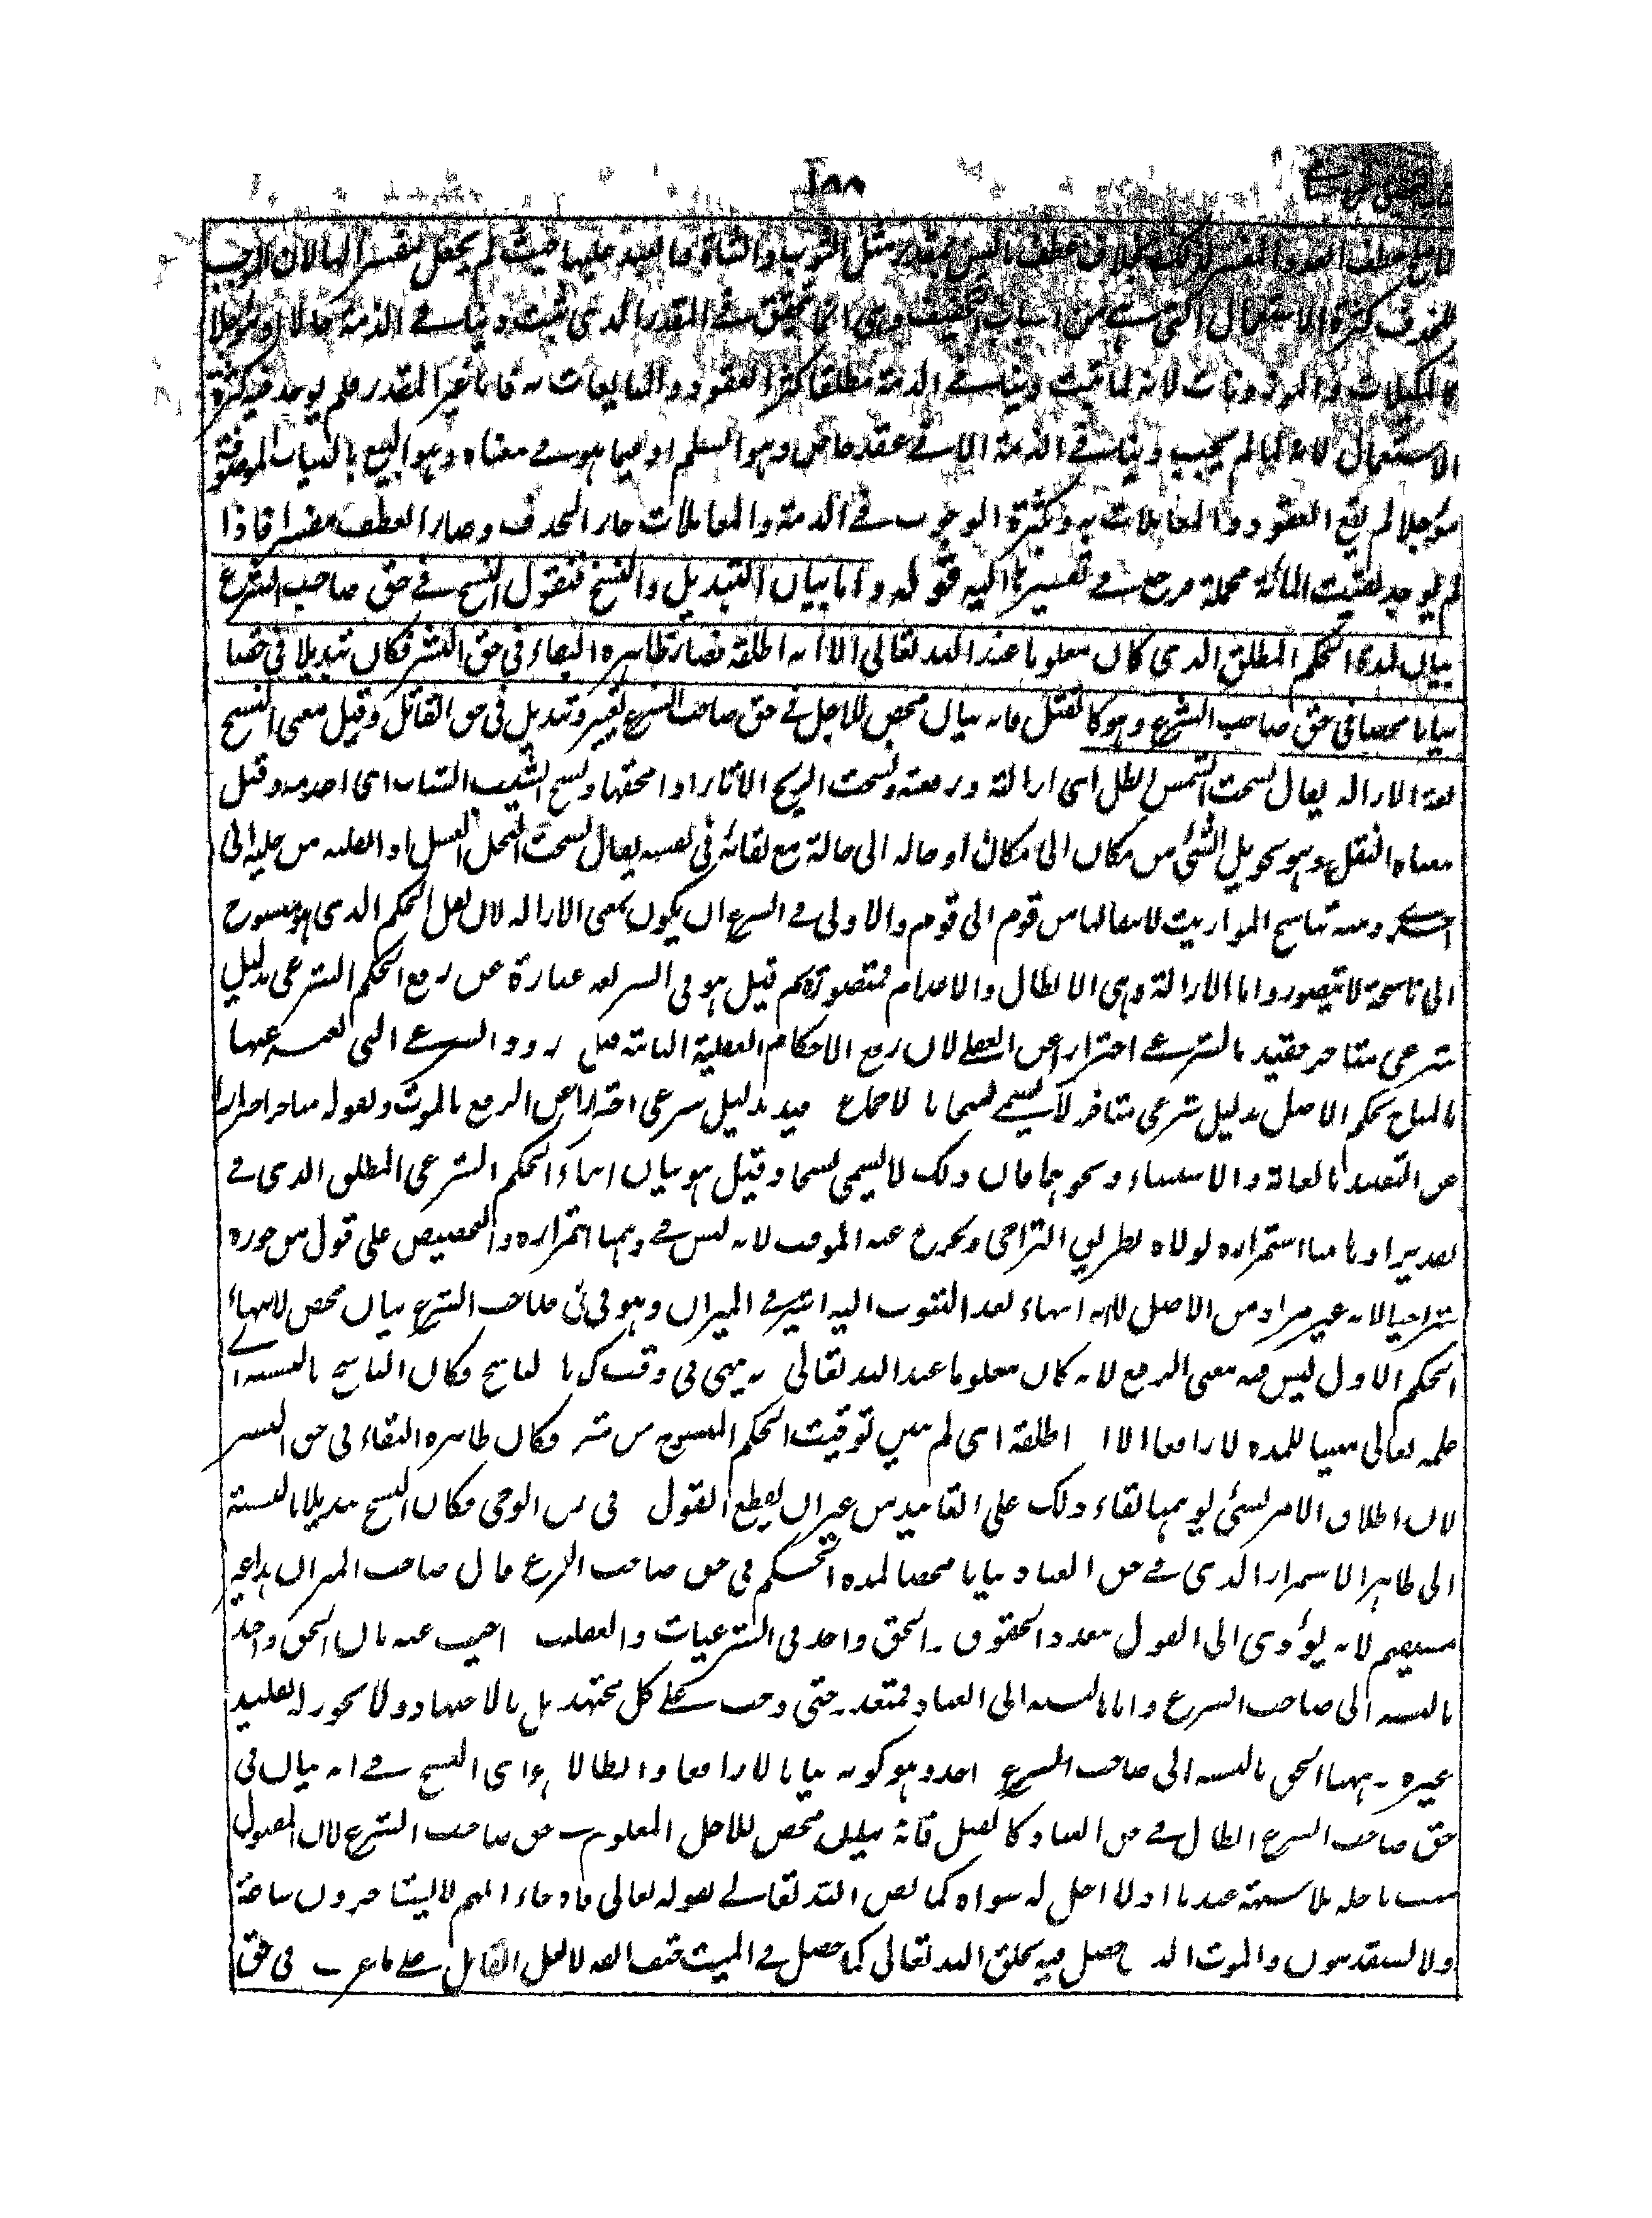 ٢٨٨
عطف العدد المفسر لذلك بخلاف عطف ما ليس بمقدر مثل الثوب والشاة حيث لم يجعل مفسرا لها لان الموجب
للحذف كثرة الاستعمال التى هى من اسباب التخفيف وهى انما تحقق فى المقدر الذى يثبت دينا فى الذمة حالا او مؤجلا
كالمكيلات والموزونات لانه لما يثبت دينا فى الذمة مطلقا كثر العقود والمبايعات به فاما غير المقدر فلم يوجد فيه كثرة
الاستعمال لانه لما لم يجب دينا فى الذمة الا فى عقد خاص وهو السلم او فيما هو فى معناه وهو البيع بالثياب الموصوفة
مؤجلا لم يقع العقود والمعاملات به وكثرة الوجوب فى الذمة والمعاملات جاز الحذف وصار العطف مفسرا فاذا
لم يوجد بقيت المائة مجملة فرجع فى تفسيرها اليه قوله واما بيان التبديل والنسخ فنقول النسخ فى حق صاحب الشرع
بيان لمدة الحكم المطلق الذى كان معلوما عند الله تعالى الا انه اطلقه فصار ظاهره البقاء فى حق البشر فكان تبديلا فى حقنا
بيانا محضا فى حق صاحب الشرع وهو كالقتل فانه بيان محض للاجل فى حق صاحب الشرع تغيير وتبديل فى حق القاتل وقيل معنى النسخ
لغة الازالة يقال نسخت الشمس الظل اى ازالته ورفعته ونسخت الريح الآثار اذا محقتها ونسخ الشيب الشباب اى اعدمه وقيل
معناه النقل وهو تحويل الشئ من مكان الى مكان او حالة الى حالة مع بقائه فى نفسه يقال نسخت النحل العسل اذا نقلته من خلية الى
اخرى ومنه تناسخ المواريث لانتقالها من قوم الى قوم والاولى فى الشرع ان يكون بمعنى الازالة لان نقل الحكم الذى هو منسوخ
الى ناسخه لا يتصور واما الازالة وهى الابطال والاعدام فمتصورة ثم قيل هو فى الشريعة عبارة عن رفع الحكم الشرعى بدليل
شرعى متاخر فقيد بالشرعى احترازا عن العقلى لان رفع الاحكام العقلية الثابتة قبل ورود الشرع التى عنها
بالمباح بحكم الاصل بدليل شرعى متاخر لا يسمى نسخا بالاجماع قيد بدليل شرعى احترازا عن الرفع بالموت وبقوله متاخر احترازا
عن التقييد بالغاية والاستثناء ونحوهما فان ذلك لا يسمى نسخا وقيل هو بيان انتهاء الحكم الشرعى المطلق الذى فى
تقدير اوهامنا استمراره لولاه بطريق التراخى ويخرج عنه الموقت لانه ليس فى وهمنا استمراره والتخصيص على قول من جوزه
متراخيا لانه غير مراد من الاصل لانه انتهاء بعد الثبوت اليه اشير فى الميزان وهو فى حق صاحب الشرع بيان محض لانتهاء
الحكم الاول ليس فيه معنى الرفع لانه كان معلوما عند الله تعالى انه ينتهى فى وقت كذا بالناسخ فكان الناسخ بالنسبة الى
علمه تعالى مبينا للمدة لا رافعا الا انه اطلقه اى لم يبين توقيت الحكم المنسوخ حين شرعه فكان ظاهره البقاء فى حق البشر
لان اطلاق الامر بشئ يوهمنا بقاء ذلك على التابيد من غير ان نقطع القول فى زمن الوحى فكان النسخ تبديلا بالنسبة
الى ظاهر الاستمرار الذى فى حق العباد بيانا محضا لمدة الحكم فى حق صاحب الشرع قال صاحب الميزان هذا غير
مستقيم لانه يؤدى الى القول بتعدد الحقوق والحق واحد فى الشرعيات والعقليات اجيب عنه بان الحق واحد
بالنسبة الى صاحب الشرع واما بالنسبة الى العباد فمتعدد حتى وجب على كل مجتهد العمل بالاجتهاد ولا يجوز له تقليد
غيره وههنا الحق بالنسبة الى صاحب الشرع واحد وهو كونه بيانا لا رافعا وابطالا هو اى النسخ فى انه بيان فى
حق صاحب الشرع ابطال فى حق العباد كالقتل فانه بيان محض للاجل المعلوم فى حق صاحب الشرع لان المقتول
ميت باجله بلا شبهة عندنا اذ لا اجل له سواه كما نص الله تعالى بقوله تعالى فاذا جاء اجلهم لا يستاخرون ساعة
ولا يستقدمون والموت الذى حصل فيه بخلق الله تعالى كما حصل فى الميت حتف انفه لا بفعل القاتل على ما عرف فى حق